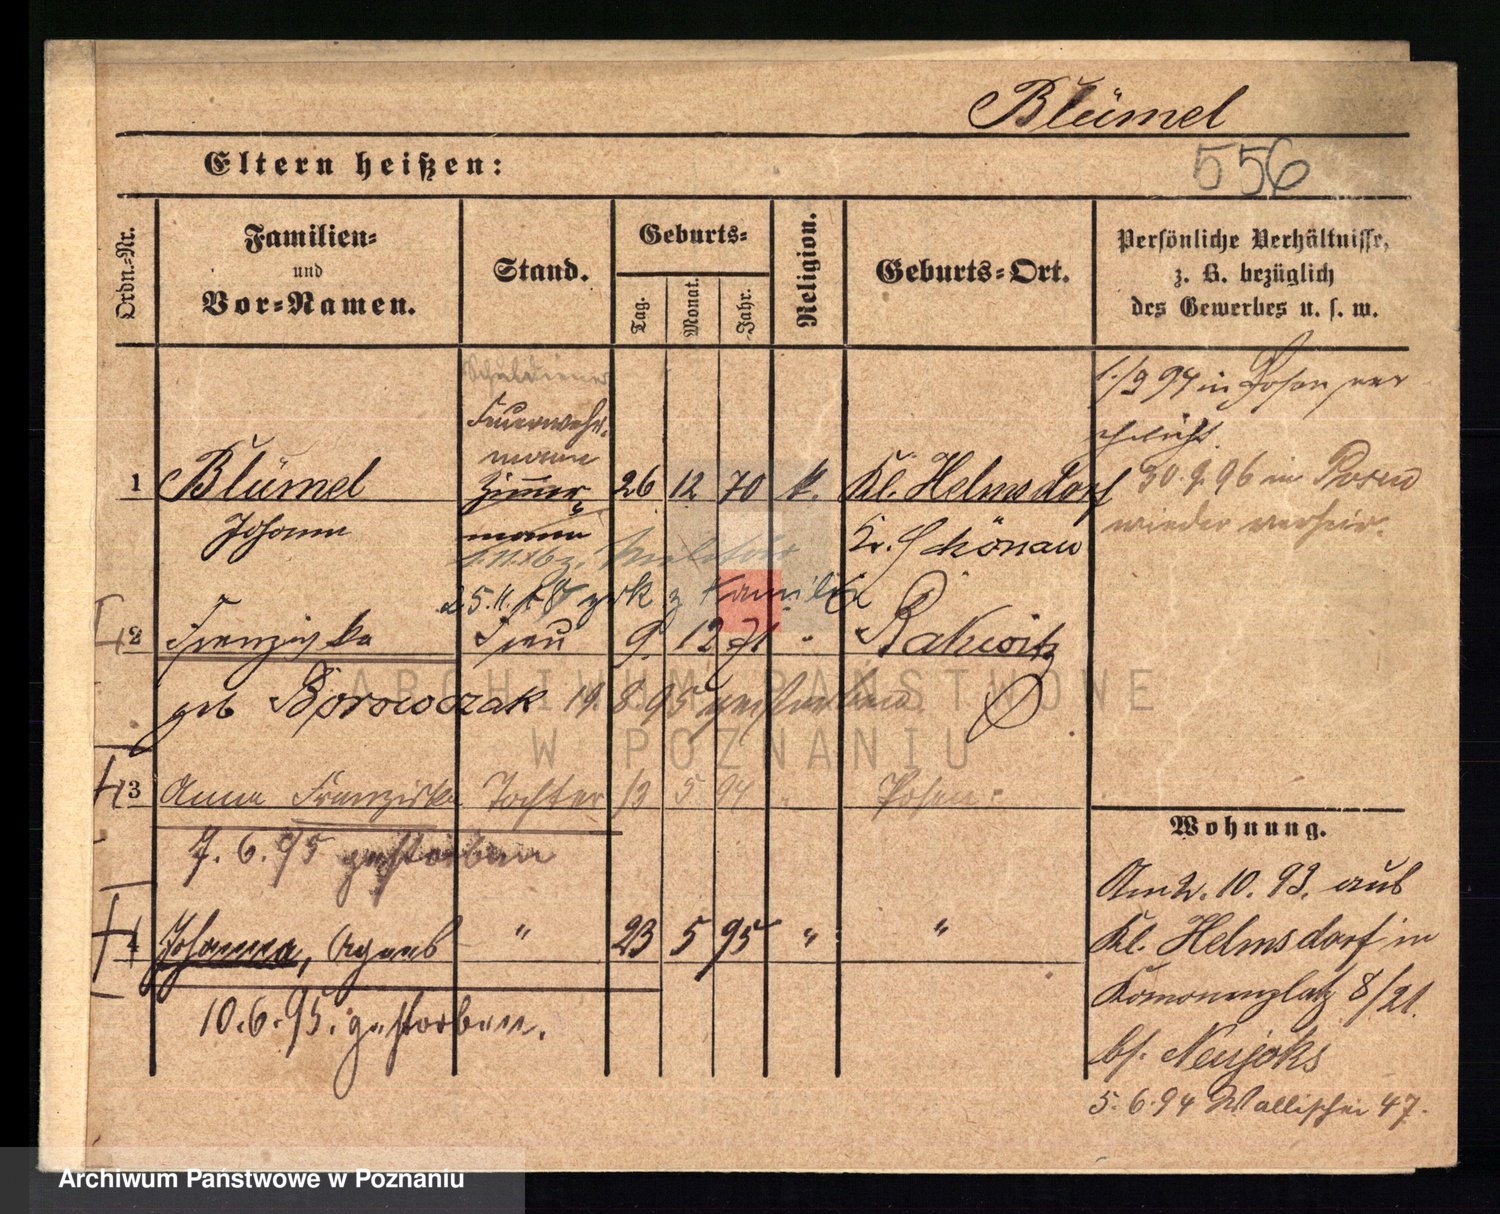 Blümel
556
Eltern heißen:
Ordn.-Nr.
Familien-
und
Vor-Namen.
Stand.
Geburts-
Tag.
Monat.
Jahr.
Religion.
Geburts-Ort.
Persönliche Verhältnisse,
z. B. bezüglich
des Gewerbes u. s. w.
Schuldiener
Feuerwehr-
mann
1 Blümel Zimmer 26 12 70 k. Kl. Helmsdorf
Johann mann Kr. Schönau
Militär
25.11. zurk z Familie
2 Franziska Frau 9 12 71 " Rakwitz
geb Borowczak 19 8 95 gestorben
3 Anna Franziska Tochter 13 5 94 " Posen
7. 6. 95 gestorben
4 Johanna, Agnes " 23 5 95 " "
10. 6. 95. gestorben.
1./9 94 in Posen ver
ehelicht.
30. 9. 96 in Posen
wieder verheir.
Wohnung.
Am 2. 10. 93. aus
Kl. Helmsdorf in
Kanonenplatz 8/21.
bf. Neujoks
5. 6. 94 Wallischei 47.
ARCHIWUM PAŃSTWOWE
W POZNANIU
Archiwum Państwowe w Poznaniu